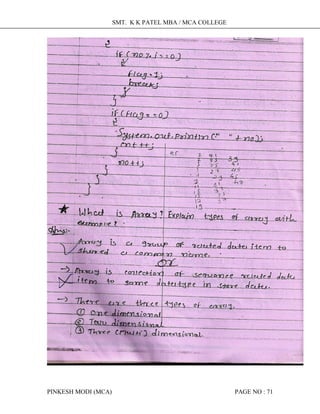 SMT. K K PATEL MBA / MCA COLLEGE
{
if (no % i == 0)
{
flag = 1;
break;
}
}
if (flag == 0)
{
System.out.println(" " + no);
cnt++;
}
no++;
}
}
}
★ What is Array? Explain types of array with
example?
Ans:-
Array is a group of related data item to
shared a common name.
OR
→ Array is collection of sequence related data
item to same datatype in store data.
→ There are three types of array.
① One dimensional
② Two dimensional
③ Three (Multi) dimensional.
PINKESH MODI (MCA) PAGE NO : 71